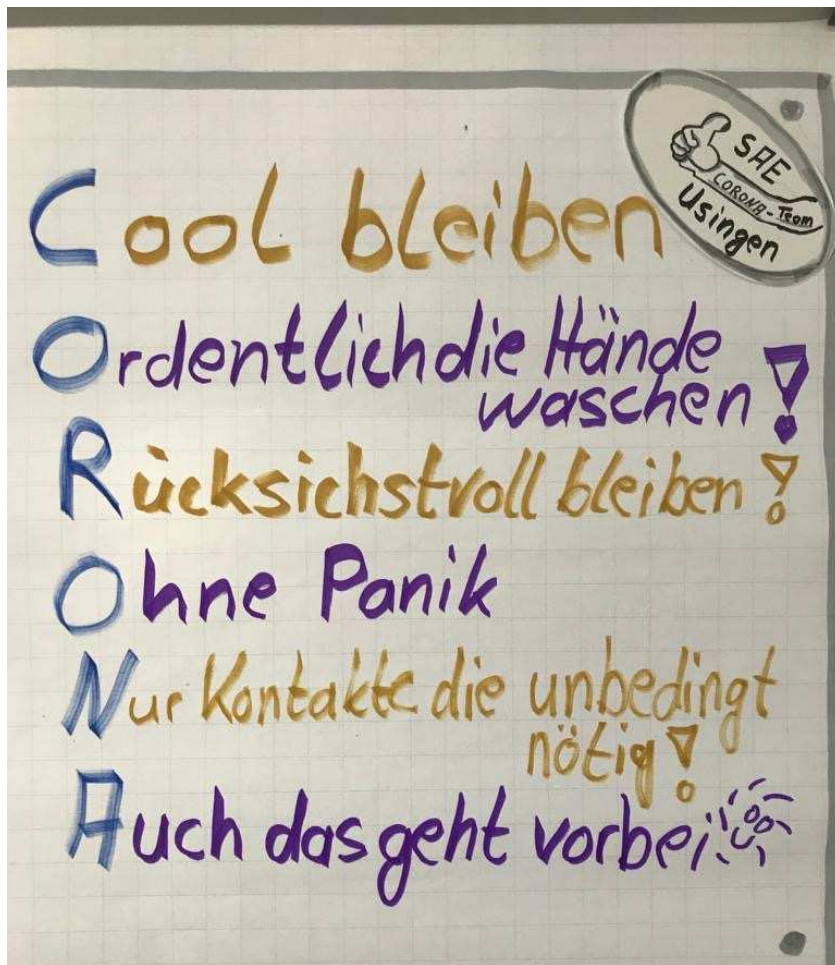 SAE
CORONA-Team
Usingen
Cool bleiben
Ordentlich die Hände
waschen!
Rücksichstvoll bleiben!
Ohne Panik
Nur Kontakte die unbedingt
nötig!
Auch das geht vorbei